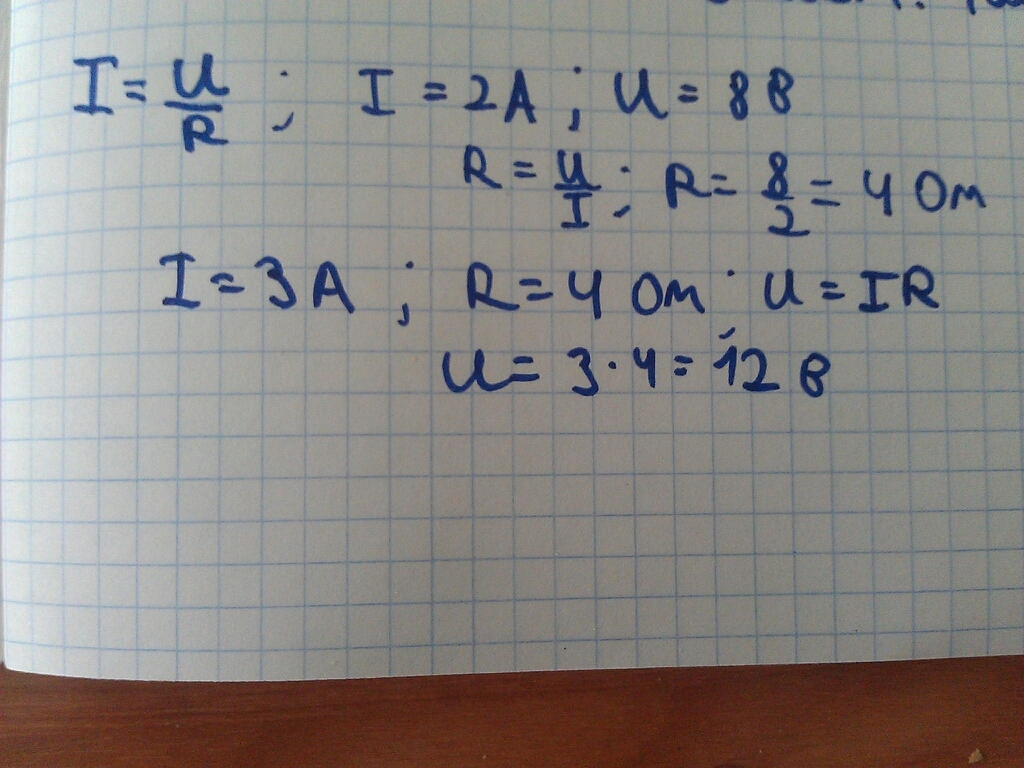 I = U/R ; I = 2A ; U = 8В
R = U/I ; R = 8/2 = 4 Ом
I = 3А ; R = 4 Ом U = IR
U = 3·4 = 12 В